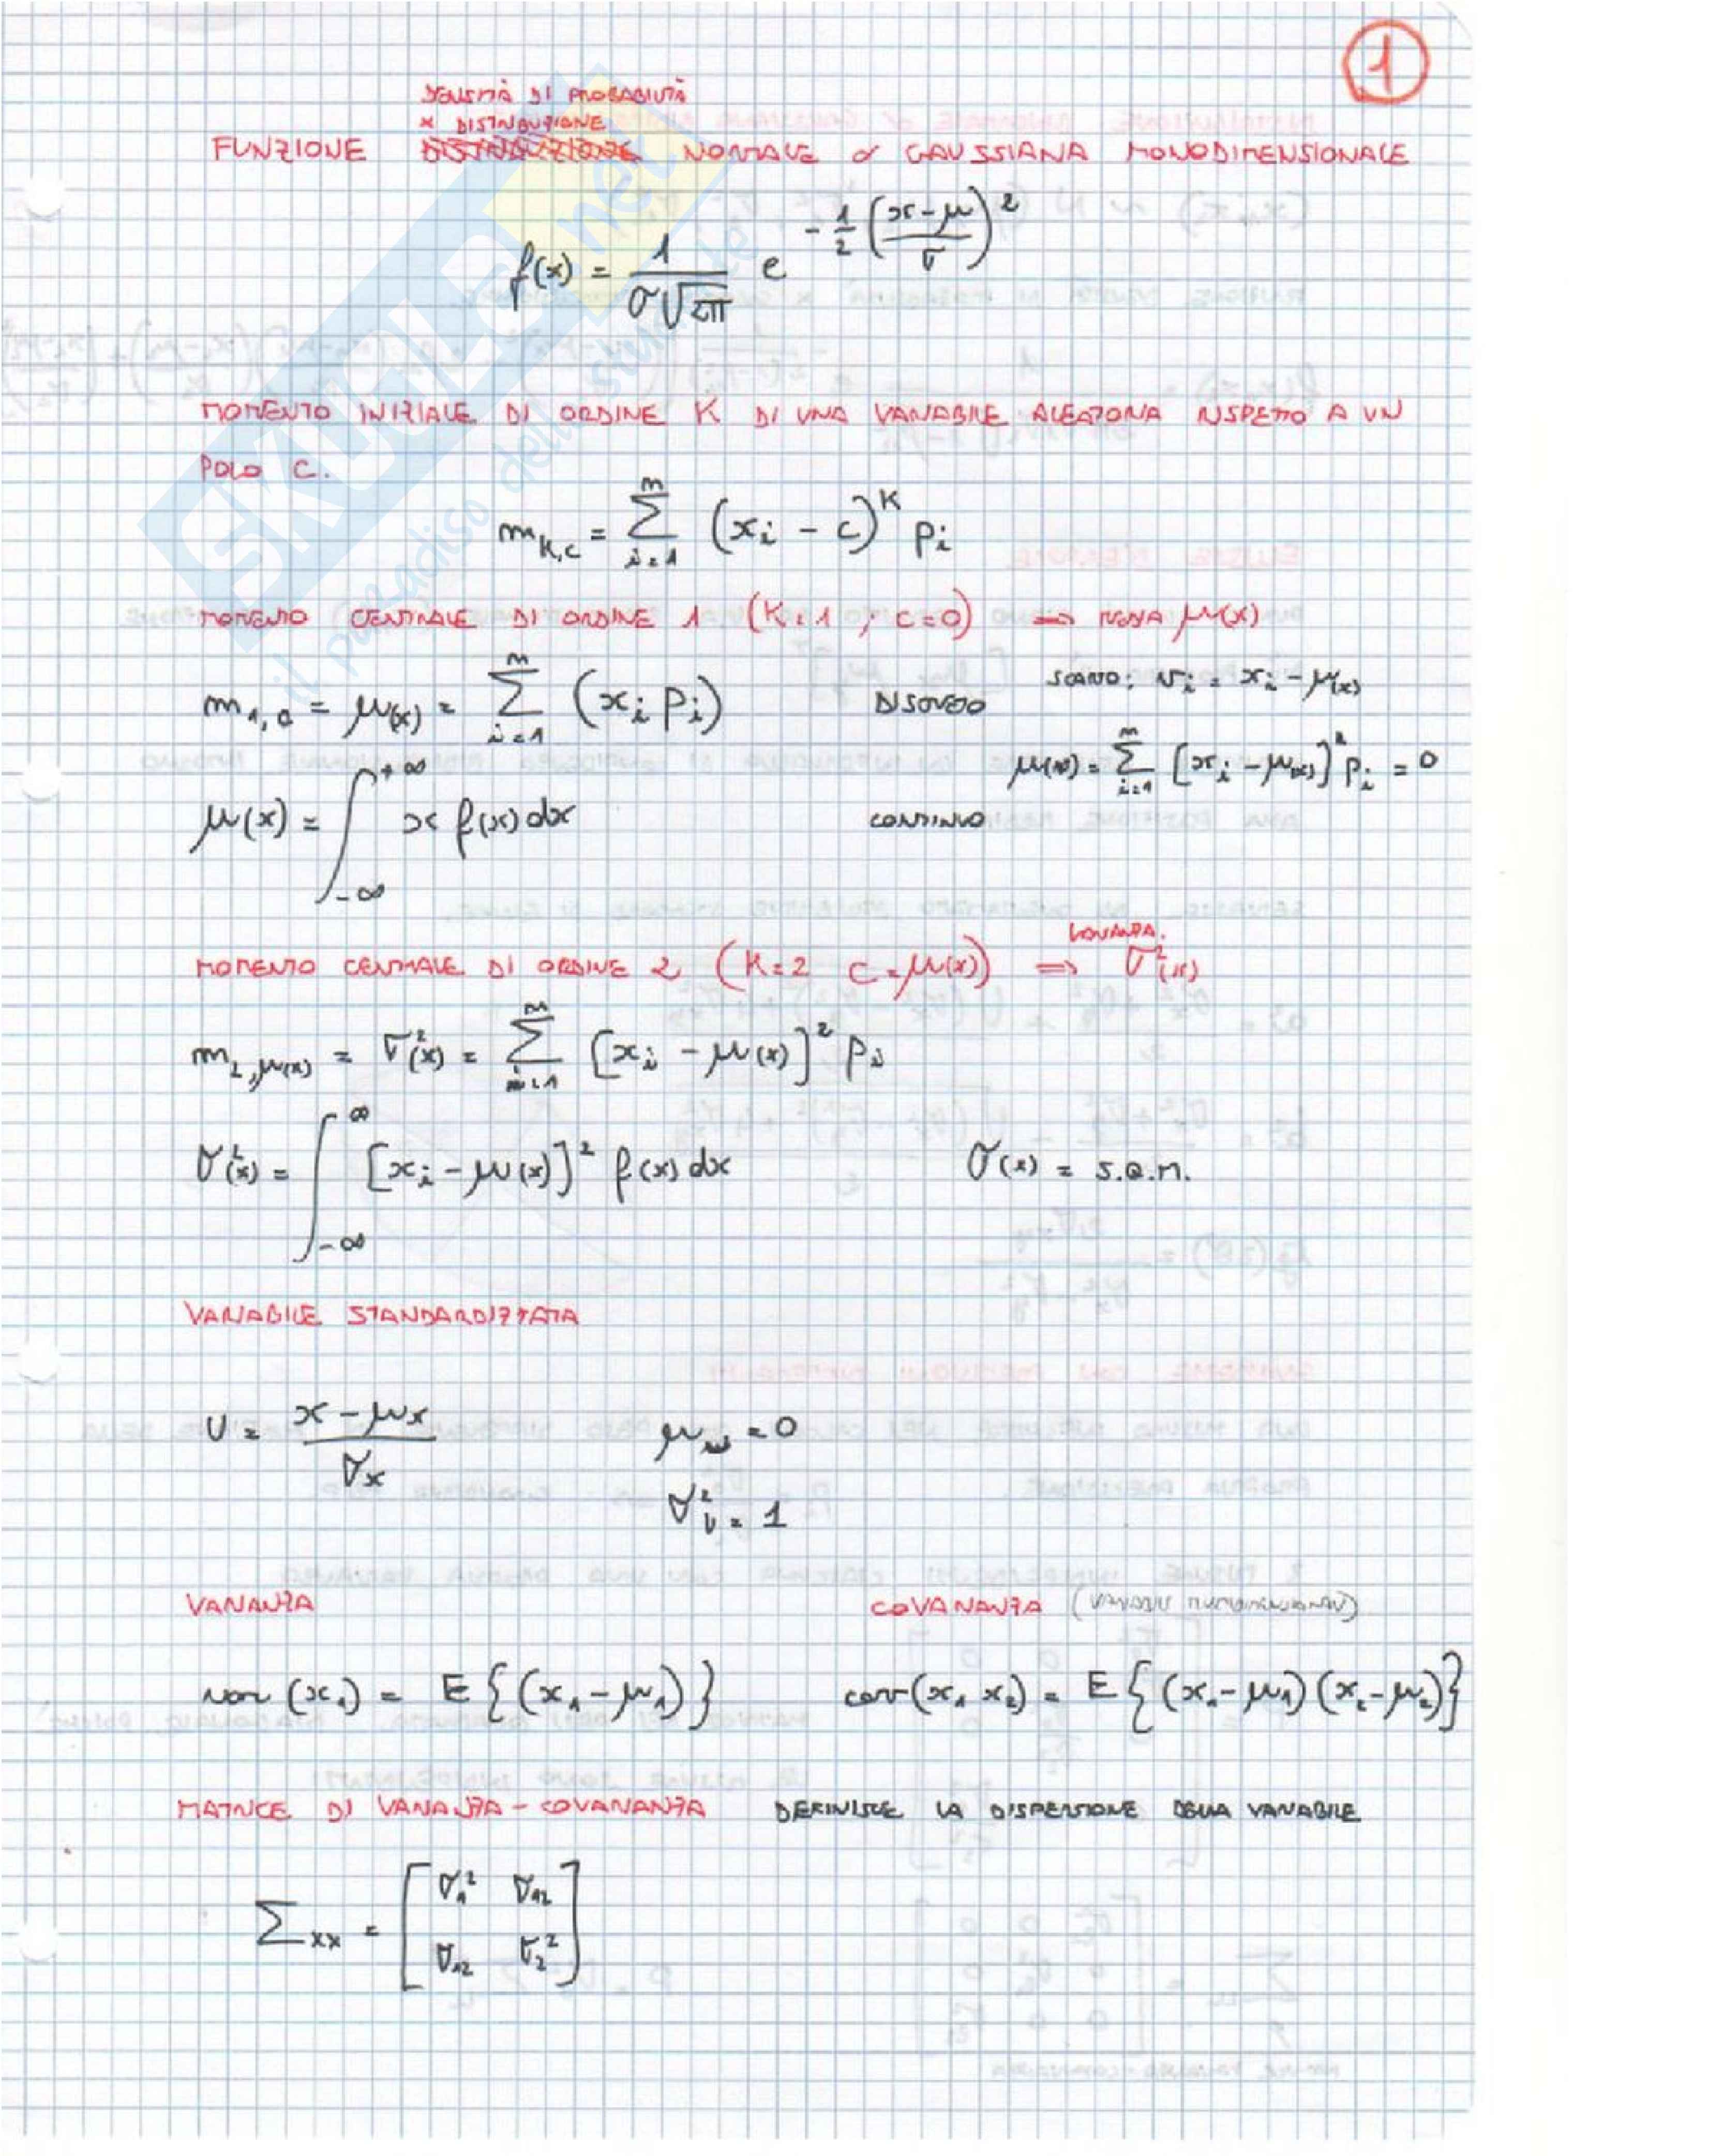 1
DENSITÀ DI PROBABILITÀ
x DISTRIBUZIONE
FUNZIONE DISTRIBUZIONE NORMALE o GAUSSIANA MONODIMENSIONALE
f(x) = 1/(σ√2π) e^(-1/2 ((x-μ)/σ)^2)
MOMENTO INIZIALE DI ORDINE K DI UNA VARIABILE ALEATORIA RISPETTO A UN
POLO C.
m_K,C = Σ_{i=1}^{n} (x_i - c)^K p_i
MOMENTO CENTRALE DI ORDINE 1 (K=1 ; C=0) ⇒ MEDIA μ(x)
SCARTO: v_i = x_i - μ(x)
m_1,0 = μ(x) = Σ_{i=1}^{n} (x_i p_i) DISCRETO
μ(v) = Σ_{i=1}^{n} [x_i - μ(x)]^2 p_i = 0
μ(x) = ∫_{-∞}^{+∞} x f(x) dx CONTINUO
VARIANZA.
MOMENTO CENTRALE DI ORDINE 2 (K=2 C=μ(x)) ⇒ σ^2(x)
m_2,μ(x) = σ^2(x) = Σ_{i=1}^{n} [x_i - μ(x)]^2 p_i
σ^2(x) = ∫_{-∞}^{∞} [x_i - μ(x)]^2 f(x) dx σ(x) = s.q.m.
VARIABILE STANDARDIZZATA
U = (x - μ_x)/σ_x μ_u = 0
σ^2_U = 1
VARIANZA COVARIANZA (VARIABILI MULTIDIMENSIONALI)
var (x_1) = E{(x_1 - μ_1)} cov(x_1 x_2) = E{(x_1 - μ_1)(x_2 - μ_2)}
MATRICE DI VARIANZA - COVARIANZA DEFINISCE LA DISPERSIONE DELLA VARIABILE
Σ_xx = [σ_1^2 σ_12
σ_12 σ_2^2]
SKUOLA.net
il paradiso dello studente